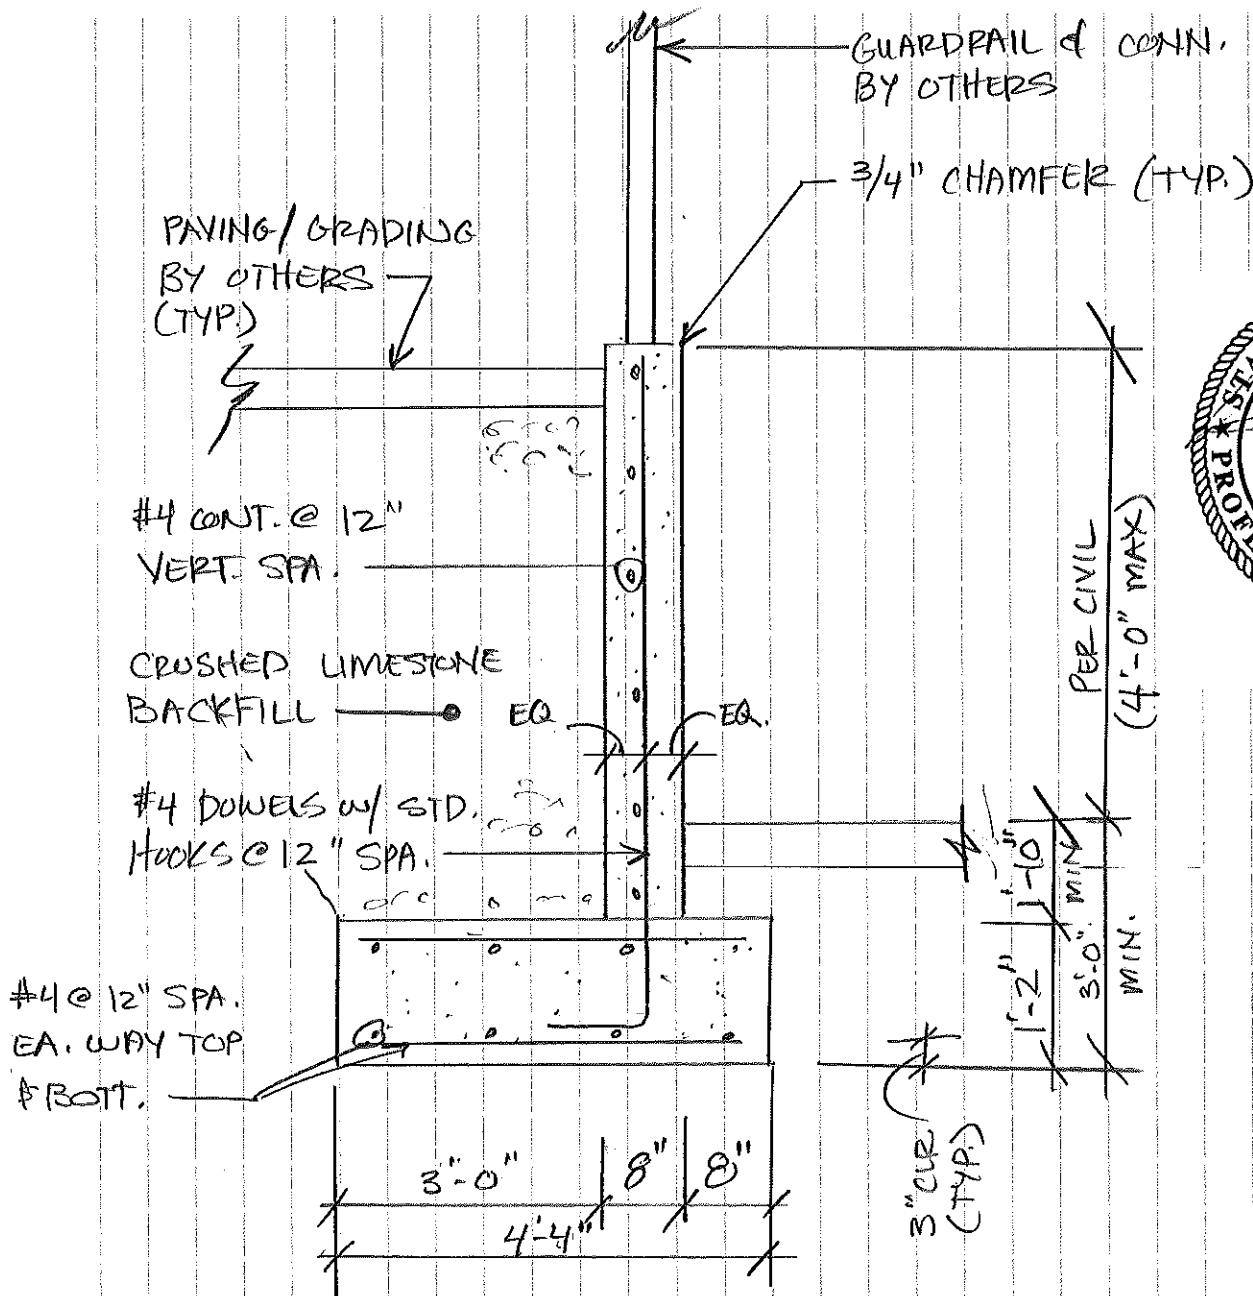 GUARDRAIL & CONN.
BY OTHERS
3/4" CHAMFER (TYP.)
PAVING/GRADING
BY OTHERS
(TYP.)
#4 CONT. @ 12"
VERT. SPA.
CRUSHED LIMESTONE
BACKFILL
EQ
EQ.
#4 DOWELS W/ STD.
HOOKS @ 12" SPA.
#4 @ 12" SPA.
EA. WAY TOP
& BOTT.
PER CIVIL
(4'-0" MAX)
1'-0"
MIN
1'-2"
3'-0"
MIN.
3" CLR
(TYP.)
3'-0"
8"
8"
4'-4"
★ PROFE